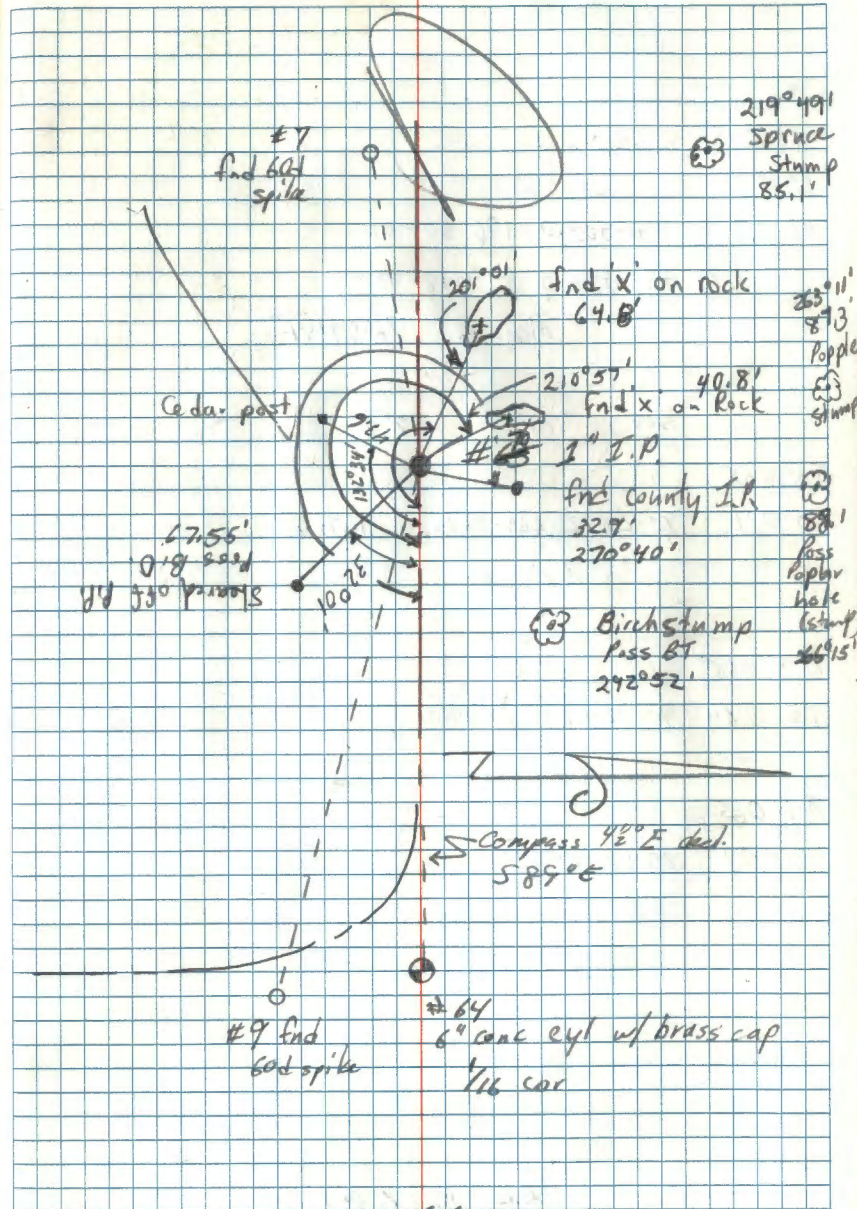 219°49'
Spruce
Stump
85.1'
#7
fnd 60d
spike
201°01'
fnd 'X' on rock
64.8'
263°11'
87.3'
Popple
Stump
210°57'
40.8'
fnd X on Rock
Cedar post
47.6
132°34'
1" I.P.
fnd county I.P.
32.9'
270°40'
88.1'
Poss
Poplar
hole
(stump)
266°15'
67.55'
Poss B.O.
Sheared off P.P.
32°001
Birch stump
Poss BT
242°52'
Compass 4½° E decl.
S 89° E
#64
6" conc cyl w/ brass cap
1/16 cor
#9 fnd
60d spike